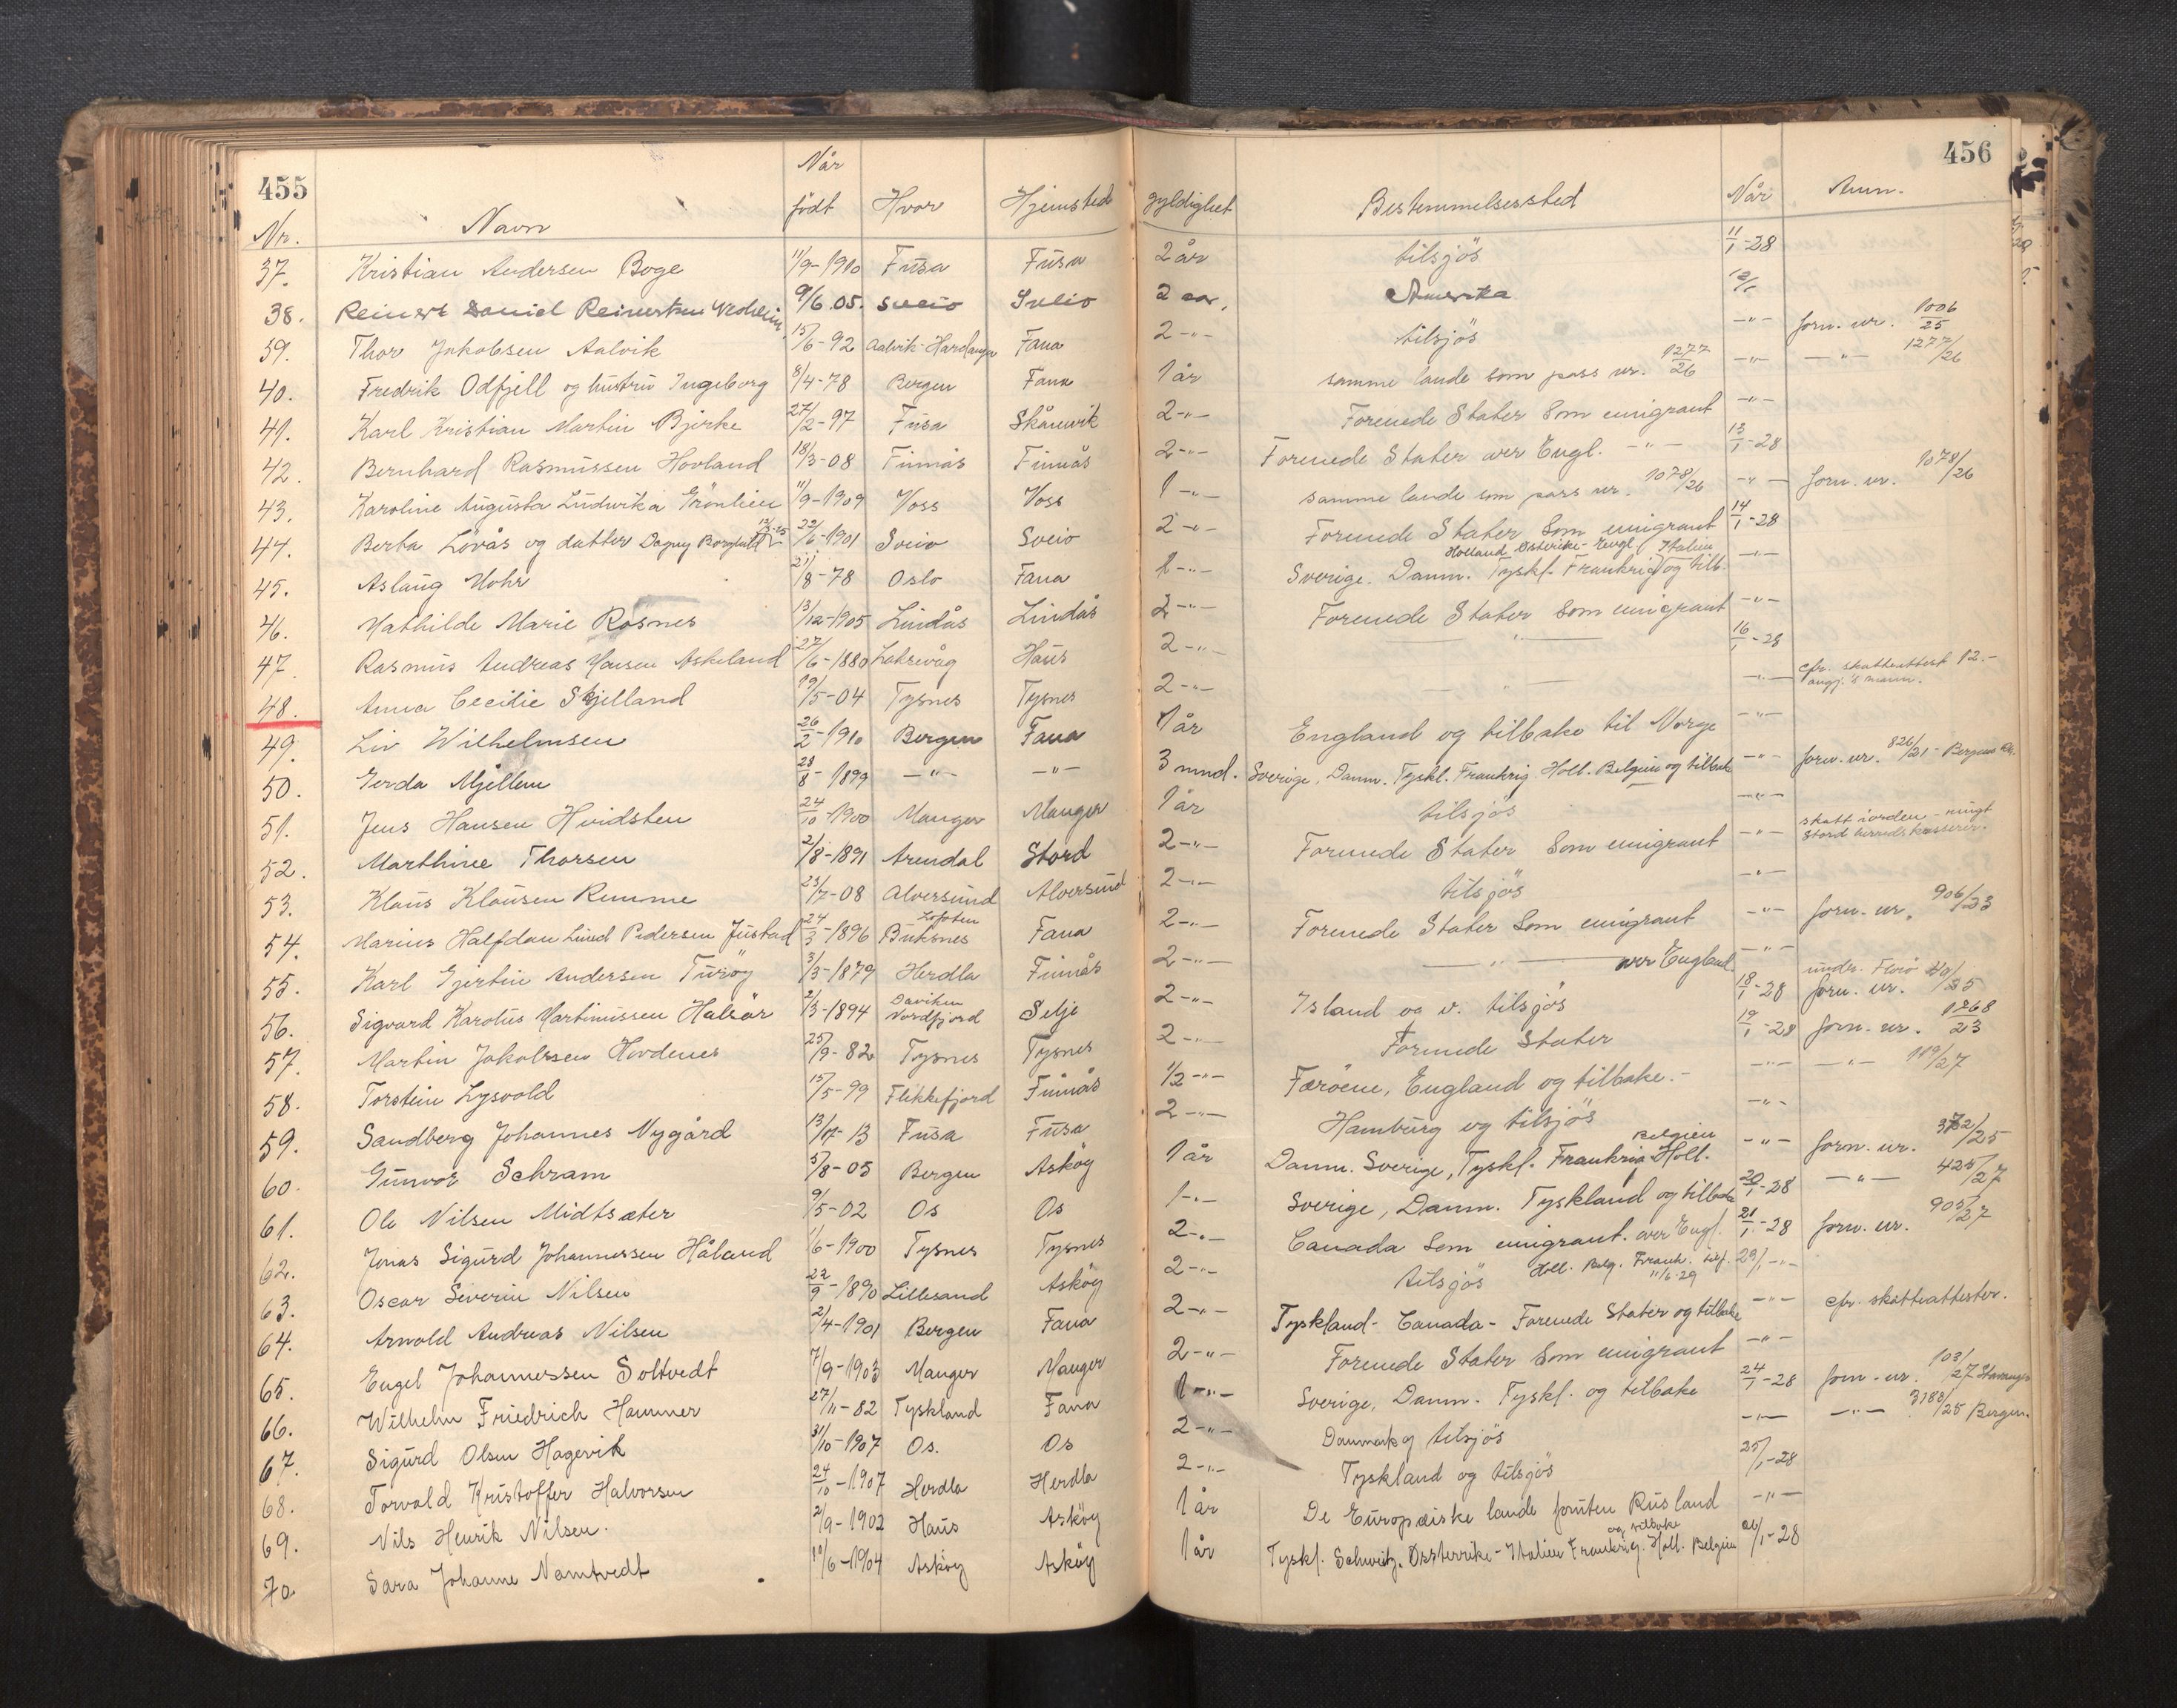 455
456
Nr. Navn Når født Hvor Hjemsted gyldighet Bestemmelsessted Når Anm.
37. Kristian Andersen Boge 11/9-1910 Fusa Fusa 2 år tilsjös 11/1-28
38. Reinert Daniel Reinertsen 9/6.05. Sveio Sveio 2 aar. Amerika 12/1
39. Thor Jakobsen Aalvik 15/6-92 Aalvik-Hardanger Fana 2-"- tilsjös -"- forn. nr. 1006/25
40. Fredrik Odfjell og hustru Ingeborg 8/4-78 Bergen Fana 1 år samme lande som pass nr. 1277/26 -"- -"- 1277/26
41. Karl Kristian Martin Bjerke 27/2-97 Fusa Skånevik 2-"- Forenede Stater som emigrant -"-
42. Bernhard Rasmussen Hovland 18/3-08 Finnås Finnås 2-"- Forenede Stater over Engl. -"- 13/1-28
43. Karoline Augusta Ludvika Grönlien 11/9-1909 Voss Voss 1-"- samme lande som pass nr. 1078/26 -"- forn. nr. 1078/26
44. Berta Lovås og datter Dagny Borghild 22/6-1901 Sveio Sveio 2-"- Forenede Stater som emigrant 14/1-28
45. Aslaug Mohr 21/8-78 Oslo Fana 1-"- Sverige. Danm. Tyskl. Frankrig og tilb. Holland Österike-Engl. Italien -"-
46. Mathilde Marie Rosnes 13/12-1905 Lindås Lindås 2-"- Forenede Stater som emigrant -"-
47. Rasmus Andreas Hansen Askeland 27/6-1880 Lakrevåg Haus 2-"- -"- 16/1-28
48. Anna Cecilie Skjelland 19/5-04 Tysnes Tysnes 2-"- -"- -"- cfr. skatteattest 12.- angj. 's mann.
49. Liv Wilhelmsen 26/2-1910 Bergen Fana 1 år England og tilbake til Norge -"-
50. Gerda Mjellem 28/8-1899 -"- -"- 3 mnd. Sverige, Danm. Tyskl. Frankrig. Holl. Belgien og tilbake -"- forn. nr. 826/21- Bergens
51. Jens Hansen Hvidsten 24/10-1900 Manger Manger 1 år tilsjös -"-
52. Marthine Thorsen 2/8-1891 Arendal Stord 2-"- Forenede Stater som emigrant -"- skatt iorden - Stord herredskasserer.
53. Klaus Klausen Remme 23/7-08 Alversund Alversund 2-"- tilsjös -"-
54. Marius Halfdan Lind Pedersen Justad 24/3-1896 Buksnes Lofoten Fana 2-"- Forenede Stater som emigrant -"- forn. nr. 906/23
55. Karl Gjertin Andersen Turöy 3/3-1879 Herdla Finnås 2-"- -"- over England. -"-
56. Sigvard Karolus Martinussen Halsör 2/3-1894 Daviken Nordfjord Selje 2-"- Island og v. tilsjös 18/1-28 undr. Florö forn. nr. 40/25
57. Martin Jakobsen Hovdenes 25/9-82 Tysnes Tysnes 2-"- Forenede Stater 19/1-28 forn. nr. 1268/23
58. Torstein Lysvold 15/5-99 Flekkefjord Finnås 1/2-"- Færöene, England og tilbake.- -"- -"- 119/27
59. Sandberg Johannes Nygård 13/17-13 Fusa Fusa 2-"- Hamburg og tilsjös -"-
60. Gunvor Schram 5/8-05 Bergen Asköy 1 år Danm. Sverige, Tyskl. Frankrig Holl. Belgien -"- forn. nr. 3732/25
61. Ole Nilsen Midtsæter 9/5-02 Os Os 1-"- Sverige, Danm. Tyskland og tilbake 20/1-28 -"- 425/27
62. Jonas Sigurd Johannessen Håland 1/6-1900 Tysnes Tysnes 2-"- Canada som emigrant. over Engl. 21/1-28 forn. nr. 905/27
63. Oscar Severin Nilsen 22/9-1890 Lillesand Asköy 2-"- tilsjös Holl. Belg. Frank. 11/6-29 23/1-"-
64. Arnold Andreas Nilsen 2/4-1901 Bergen Fana 2-"- Tyskland- Canada- Forenede Stater og tilbake -"- cfr. skatteattester.
65. Engel Johannessen Soltvedt 7/9-1903 Manger Manger 2-"- Forenede Stater som emigrant -"-
66. Wilhelm Friedrich Hammer 27/11-82 Tyskland Fana 1-"- Sverige, Danm. Tyskl. og tilbake 24/1-28 forn. nr. 103/27 Stavanger
67. Sigurd Olsen Hagevik 31/10-1907 Os. Os 2-"- Danmark og tilsjös -"- -"- 3188/25 Bergen.
68. Torvald Kristoffer Halvorsen 24/10-1907 Herdla Herdla 2-"- Tyskland og tilsjös 25/1-28
69. Nils Henrik Nilsen. 2/9-1902 Haus Asköy 1 år De Europæiske lande foruten Rusland -"-
70. Sara Johanne Namtvedt 10/6-1904 Asköy Asköy 1 år Tyskl. Schweitz. Östterrike-Italien Frankrig. Holl. Belgien og tilbake 26/1-28